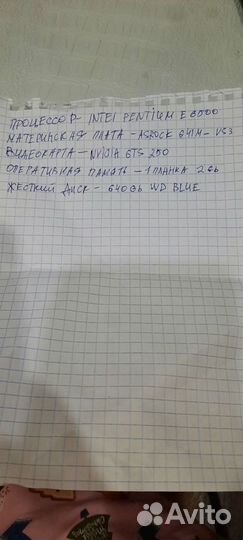 ПРОЦЕССОР - INTEL PENTIUM E6500
МАТЕРИНСКАЯ ПЛАТА - ASROCK G41M - VS3
ВИДЕОКАРТА - NVIDIA GTS 250
ОПЕРАТИВНАЯ ПАМЯТЬ - 1 ПЛАНКА 2 GB
ЖЕСТКИЙ ДИСК - 640 GB WD BLUE
Avito